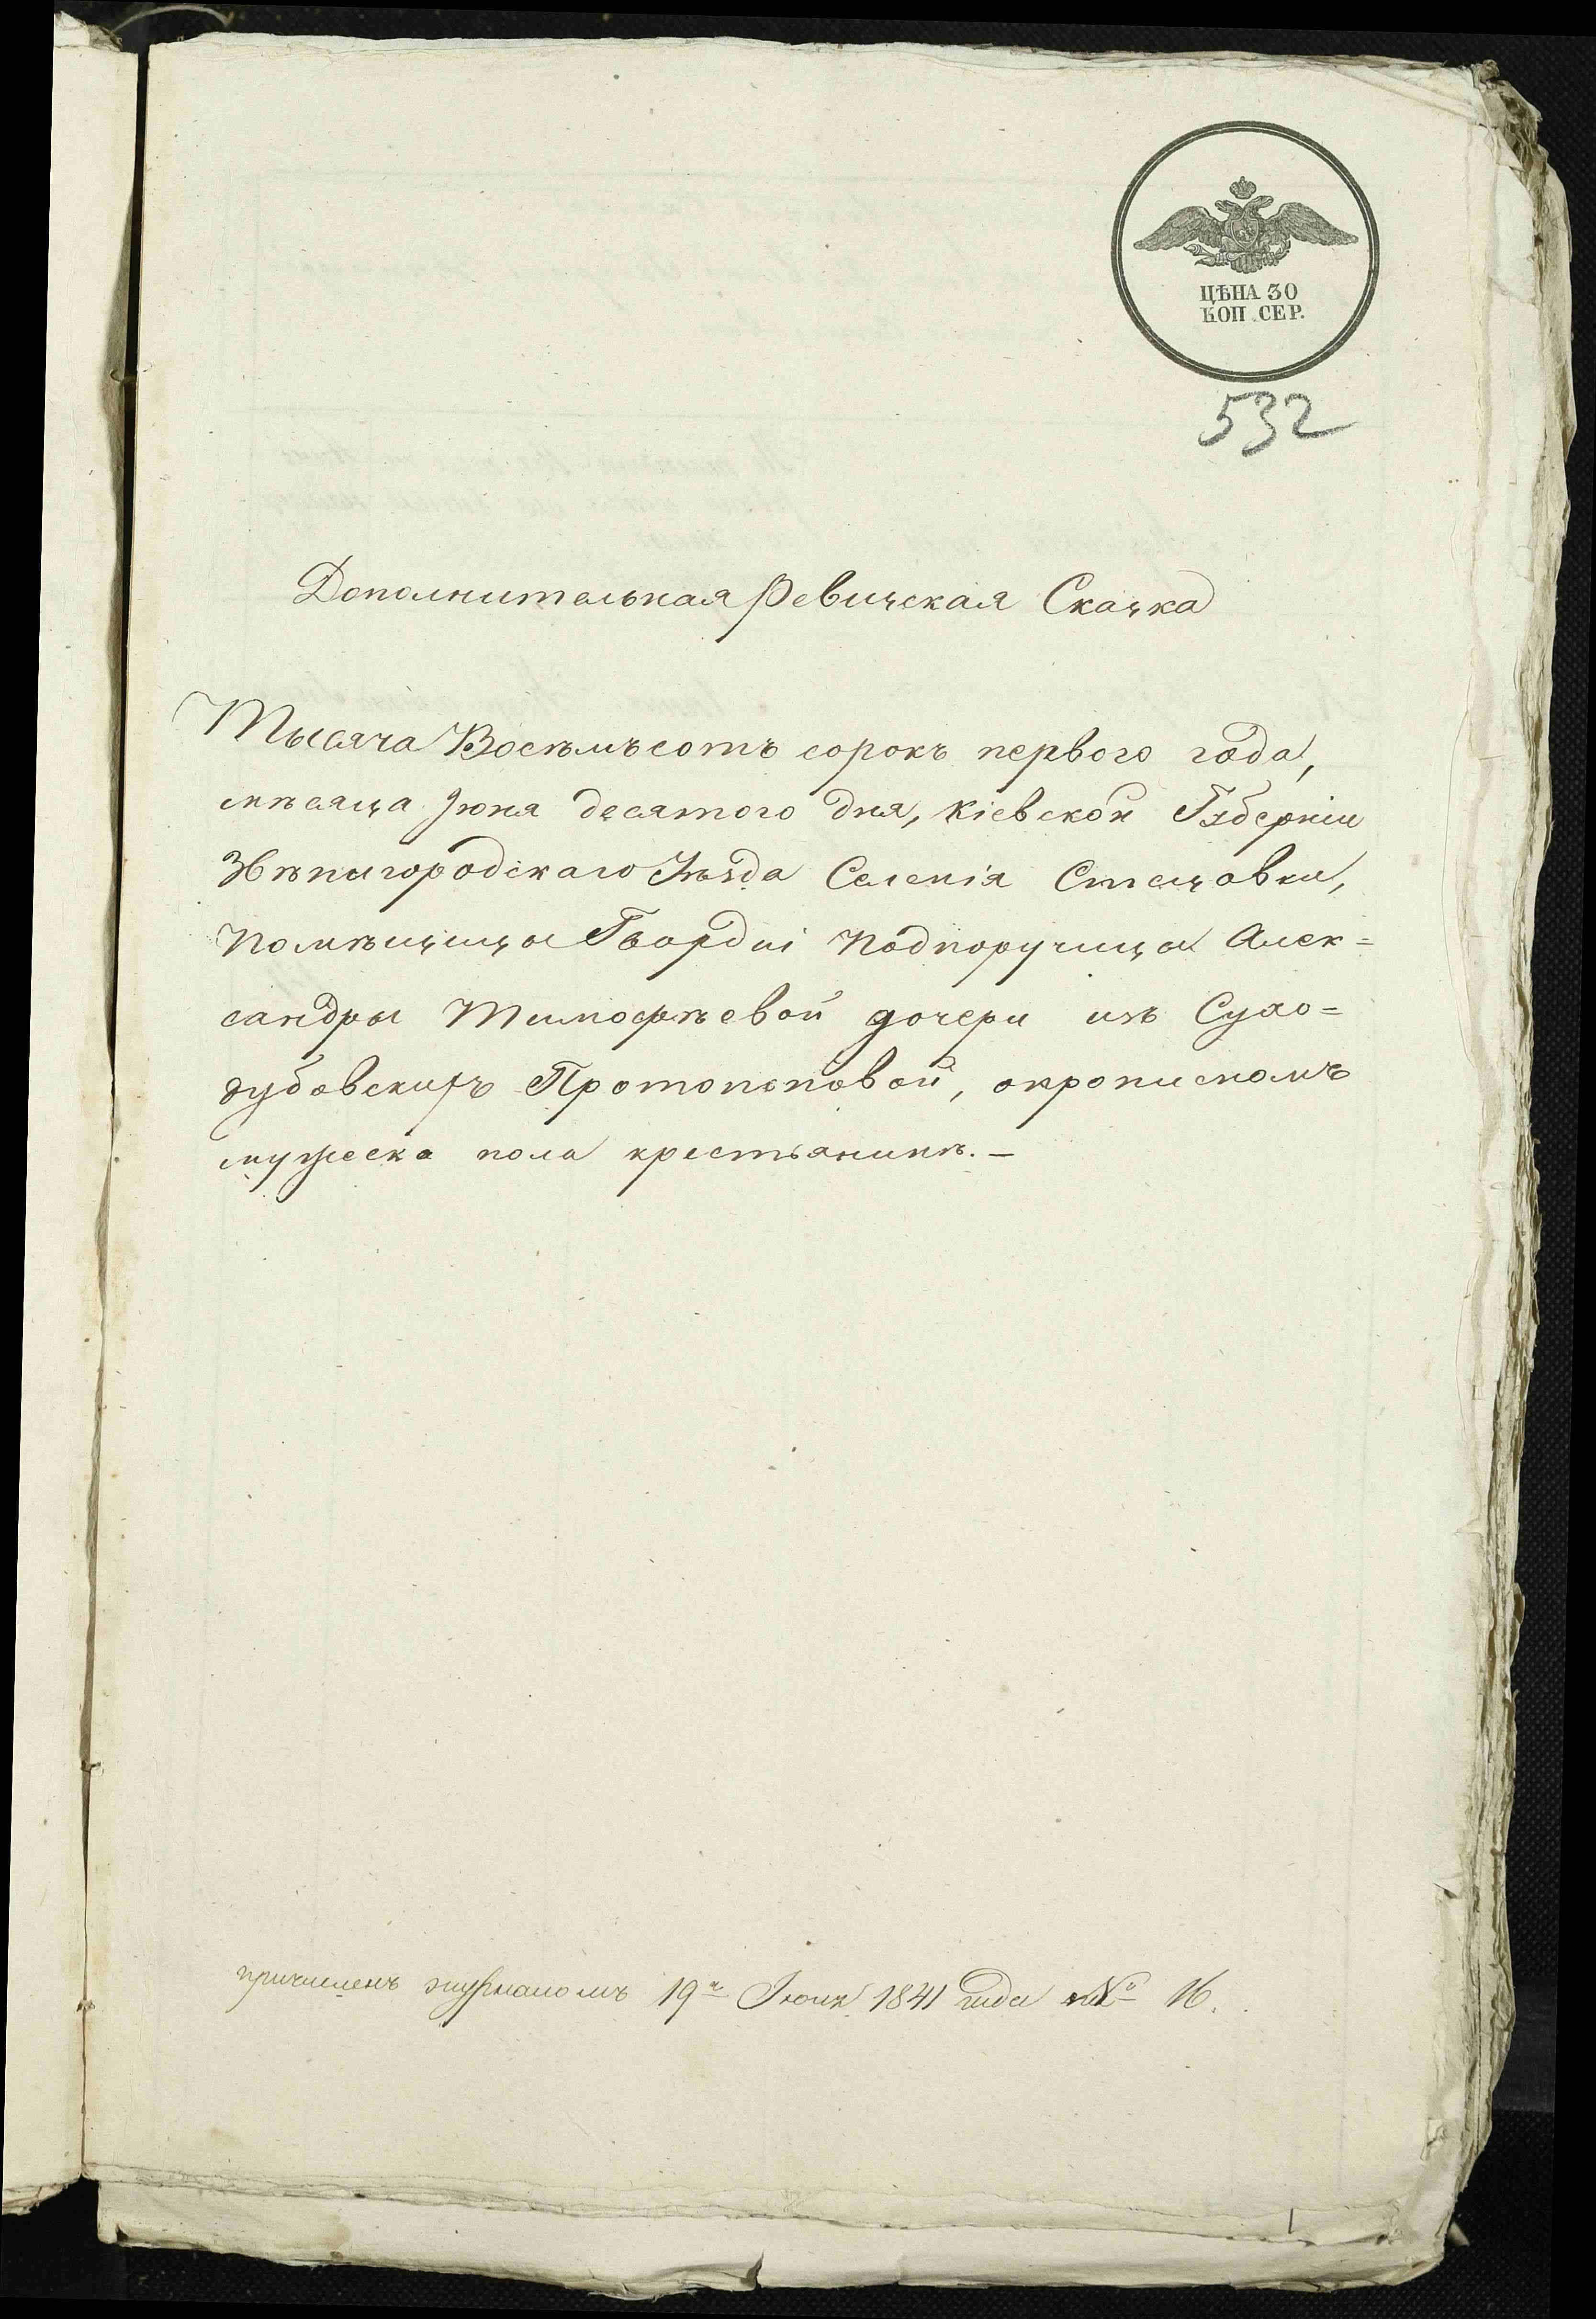 ЦѢНА 30
КОП. СЕР.
532
Дополнительная Ревизская Сказка
Тысяча Восѣмъсотъ сорокъ первого года,
мѣсяца Іюня десятого дня, Кіевской Губерніи
Звѣнигородскаго Уѣзда Селенія Стецовки,
Помѣщицы Гвардіи Подпоручицы Алек=
сандры Тимофѣевой дочери изъ Сухо=
дубовскихъ Протопоповой, о крописномъ
мужеска пола крестьянинѣ. —
причисленъ журналомъ 19го Іюня 1841 года № 16.